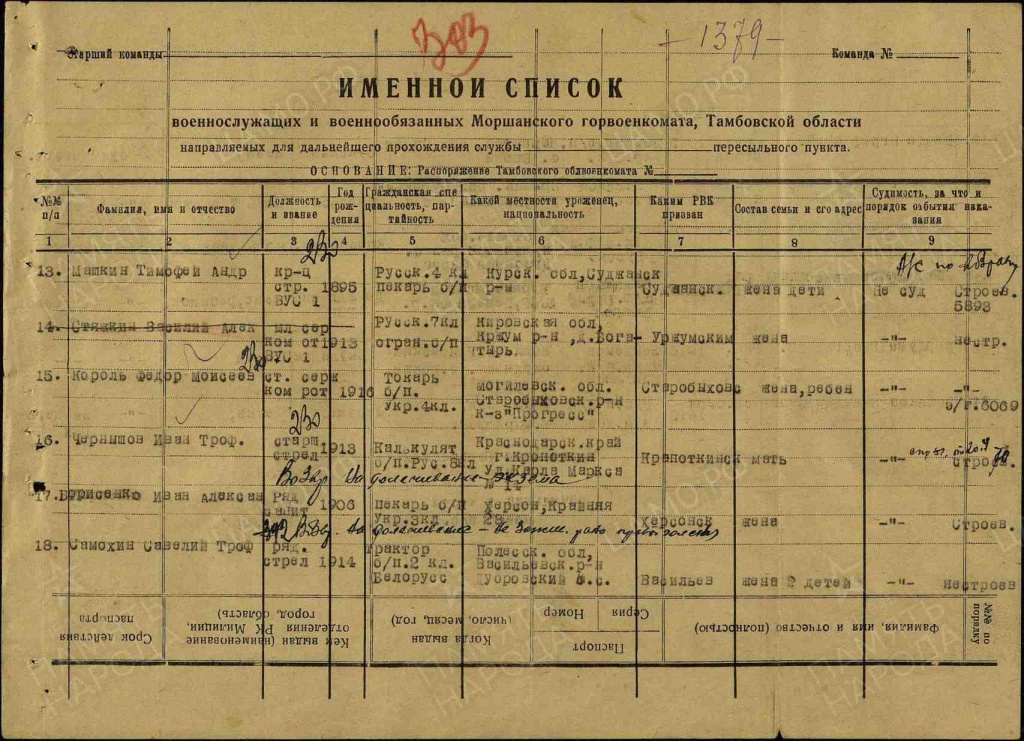 303
- 1379 -
Старший команды
Команда №
ИМЕННОЙ СПИСОК
военнослужащих и военнообязанных Моршанского горвоенкомата, Тамбовской области
направляемых для дальнейшего прохождения службы пересыльного пункта.
ОСНОВАНИЕ: Распоряжение Тамбовского облвоенкомата №
№№ п/п Фамилия, имя и отчество Должность и звание Год рож-дения Гражданская спе циальность, пар-тийность Какой местности уроженец, национальность Каким РВК призван Состав семьи и его адрес Судимость, за что и порядок отбытия нака-зания
1 2 3 4 5 6 7 8 9
230
13. Машкин Тимофей Андр кр-ц Русск.4 кл Курск. обл,Суджанск
стр. 1895 пекарь б/п р-н Суджанск. жена дети Не суд Строев.
ВУС 1 5893
14. Стяжкин Василий Алек мл сер Русск.7кл Кировская обл,
ком от 1913 огран.б/п Кржум р-н ,д.Бога- Уржумским жена -"- нестр.
ВУС 1 тырь.
230
15. Король Федор Моисеев ст. серж Токарь могилевск. обл.
ком рот 1916 б/п. Старобыховск.р-н Старобыховс жена,ребен -"- -"-
Укр.4кл. к-з"Прогресс" з/г.6069
230
16. Чернышов Иван Троф. старш Краснодарск.край
стрел 1913 Калькулят г.Кропоткин Кропоткинск мать -"- строев.
б/п.Рус.8кл Ул.Карла Маркса
№ 14
на долечивание экзема
17. Борисенко Иван Алексан Ряд
санит 1906 пекарь б/п Херсон,Крайняя
Укр.3кл. 28 Херсонск жена -"- Строев.
на долечивание -
18. Самохин Савелий Троф ряд. трактор Полесск. обл,
стрел 1914 б/п.2 кл. Васильевск.р-н
Белорусс Дубровский с.с. Васильев жена 2 детей -"- нестроев
№№ по порядку Фамилия, имя и отчество (полностью) Паспорт Серия Номер Когда выдан (число, месяц, год) Кем выдан (наименование отделения РК Милиции, город, область) Срок действия паспорта
ПАМЯТЬ НАРОДА
ЦАМО.РФ